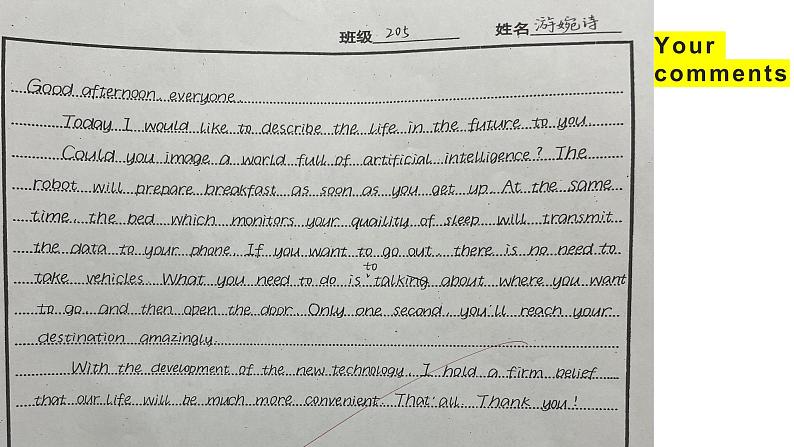 班级 205 姓名 游婉诗
Your
comments
Good afternoon everyone
Today I would like to describe the life in the future to you
Could you image a world full of artificial intelligence? The
robot will prepare breakfast as soon as you get up. At the same
time, the bed which monitors your quaility of sleep will transmit
the data to your phone. If you want to go out, there is no need to
take vehicles. What you need to do is to talking about where you want
to go, and then open the door. Only one second, you'll reach your
destination amazingly.
With the development of the new technology, I hold a firm belief
that our life will be much more convenient. That' all. Thank you!